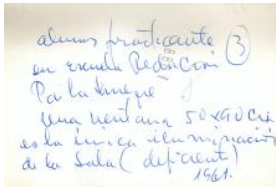 alumno practicante ③
en escuela Redención
Por la tarde
una ventana 50x90 cm
es la única iluminación
de la Sala (deficiente)
1961.